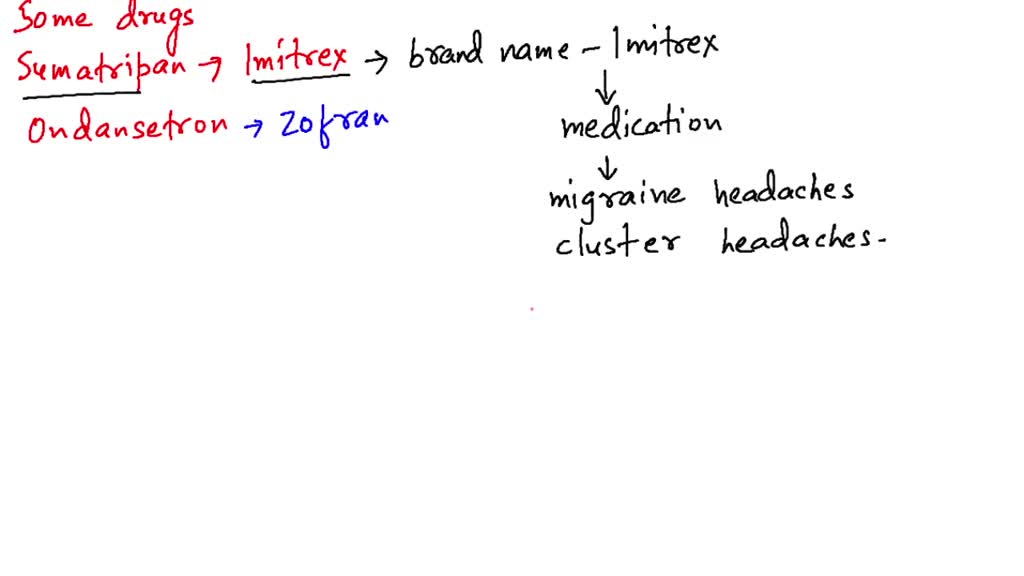 Some drugs
Sumatripan → Imitrex → brand name - Imitrex
Ondansetron → Zofran
↓
medication
↓
migraine headaches
cluster headaches.